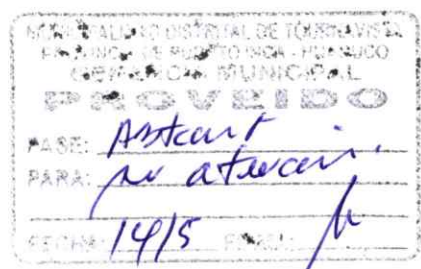 MUNICIPALIDAD DISTRITAL DE TOURNAVISTA
PROVINCIA DE PUERTO INCA - HUANUCO
GERENCIA MUNICIPAL
PROVEIDO
PASE:
PARA: su atención.
14/5
FECHA: FIRMA: